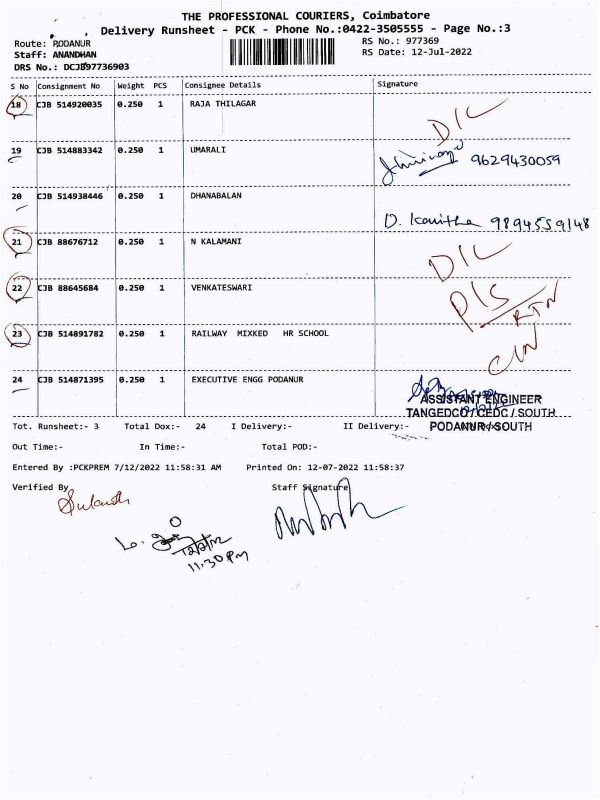 THE PROFESSIONAL COURIERS, Coimbatore
Delivery Runsheet - PCK - Phone No.:0422-3505555 - Page No.:3
Route: PODANUR RS No.: 977369
Staff: ANANDHAN RS Date: 12-Jul-2022
DRS No.: DCJB97736903
S No Consignment No Weight PCS Consignee Details Signature
18 CJB 514920035 0.250 1 RAJA THILAGAR D/L
19 CJB 514883342 0.250 1 UMARALI 9629430059
20 CJB 514938446 0.250 1 DHANABALAN D. Kavitha 9894559148
21 CJB 88676712 0.250 1 N KALAMANI D/L
22 CJB 88645684 0.250 1 VENKATESWARI P/S RTN
23 CJB 514891782 0.250 1 RAILWAY MIXKED HR SCHOOL
24 CJB 514871395 0.250 1 EXECUTIVE ENGG PODANUR
ASSISTANT ENGINEER
TANGEDCO / CEDC / SOUTH
PODANUR / SOUTH
Tot. Runsheet:- 3 Total Dox:- 24 I Delivery:- II Delivery:-
Out Time:- In Time:- Total POD:-
Entered By :PCKPREM 7/12/2022 11:58:31 AM Printed On: 12-07-2022 11:58:37
Verified By Staff Signature
11.30 PM